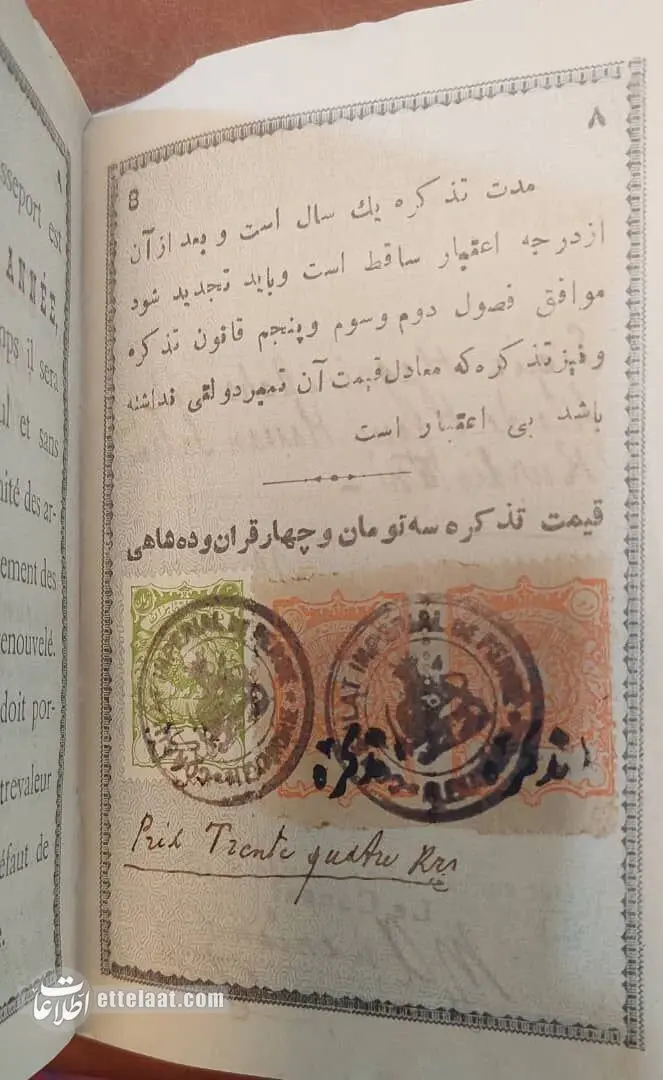 sseport est
ANNÉE,
mps il sera
ul et sans
mité des ar-
ement des
enouvelé.
doit por-
trevaleur
éfaut de
8
۸
مدت تذکره یك سال است و بعد ازآن
ازدرجه اعتبار ساقط است وباید تجدید شود
موافق فصول دوم وسوم وپنجم قانون تذکره
ونیزتذکره که معادل قیمت آن تمبردولتی نداشته
باشد بی اعتبار است
قیمت تذکره سه تومان وچهارقران وده شاهی
IMPERIAL DE PERSE
LAT IMPERIAL DE PERSE
تذکره
تذکره
Prix Trente quatre Krs
اطلاعات ettelaat.com